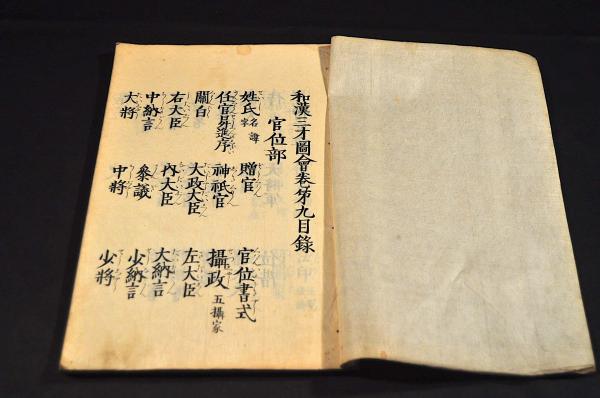 和漢三才圖會卷第九目錄
官位部
姓氏 名字 諱 贈官 官位書式
任官昇進序 神祇官 攝政 五攝家
關白 大政大臣 左大臣
右大臣 內大臣 大納言
中納言 參議 少納言
大將 中將 少將